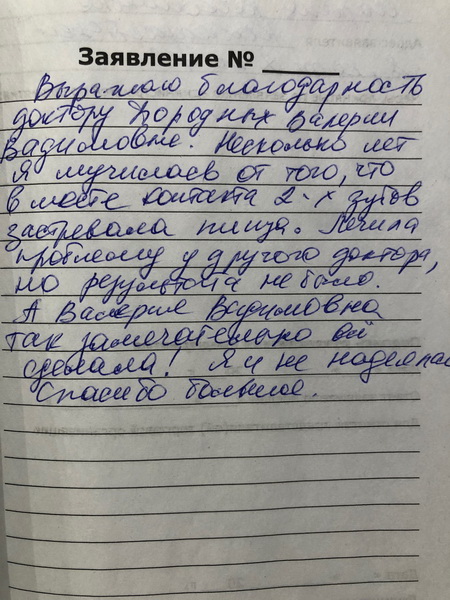 Заявление № ______
Выражаю благодарность
доктору Бородных Валерии
Вадимовне. Несколько лет
я мучилась от того, что
в месте контакта 2-х зубов
застревала пища. Лечила
проблему у другого доктора,
но результата не было.
А Валерия Вадимовна
так замечательно всё
сделала! Я и не надеялас
Спасибо большое.